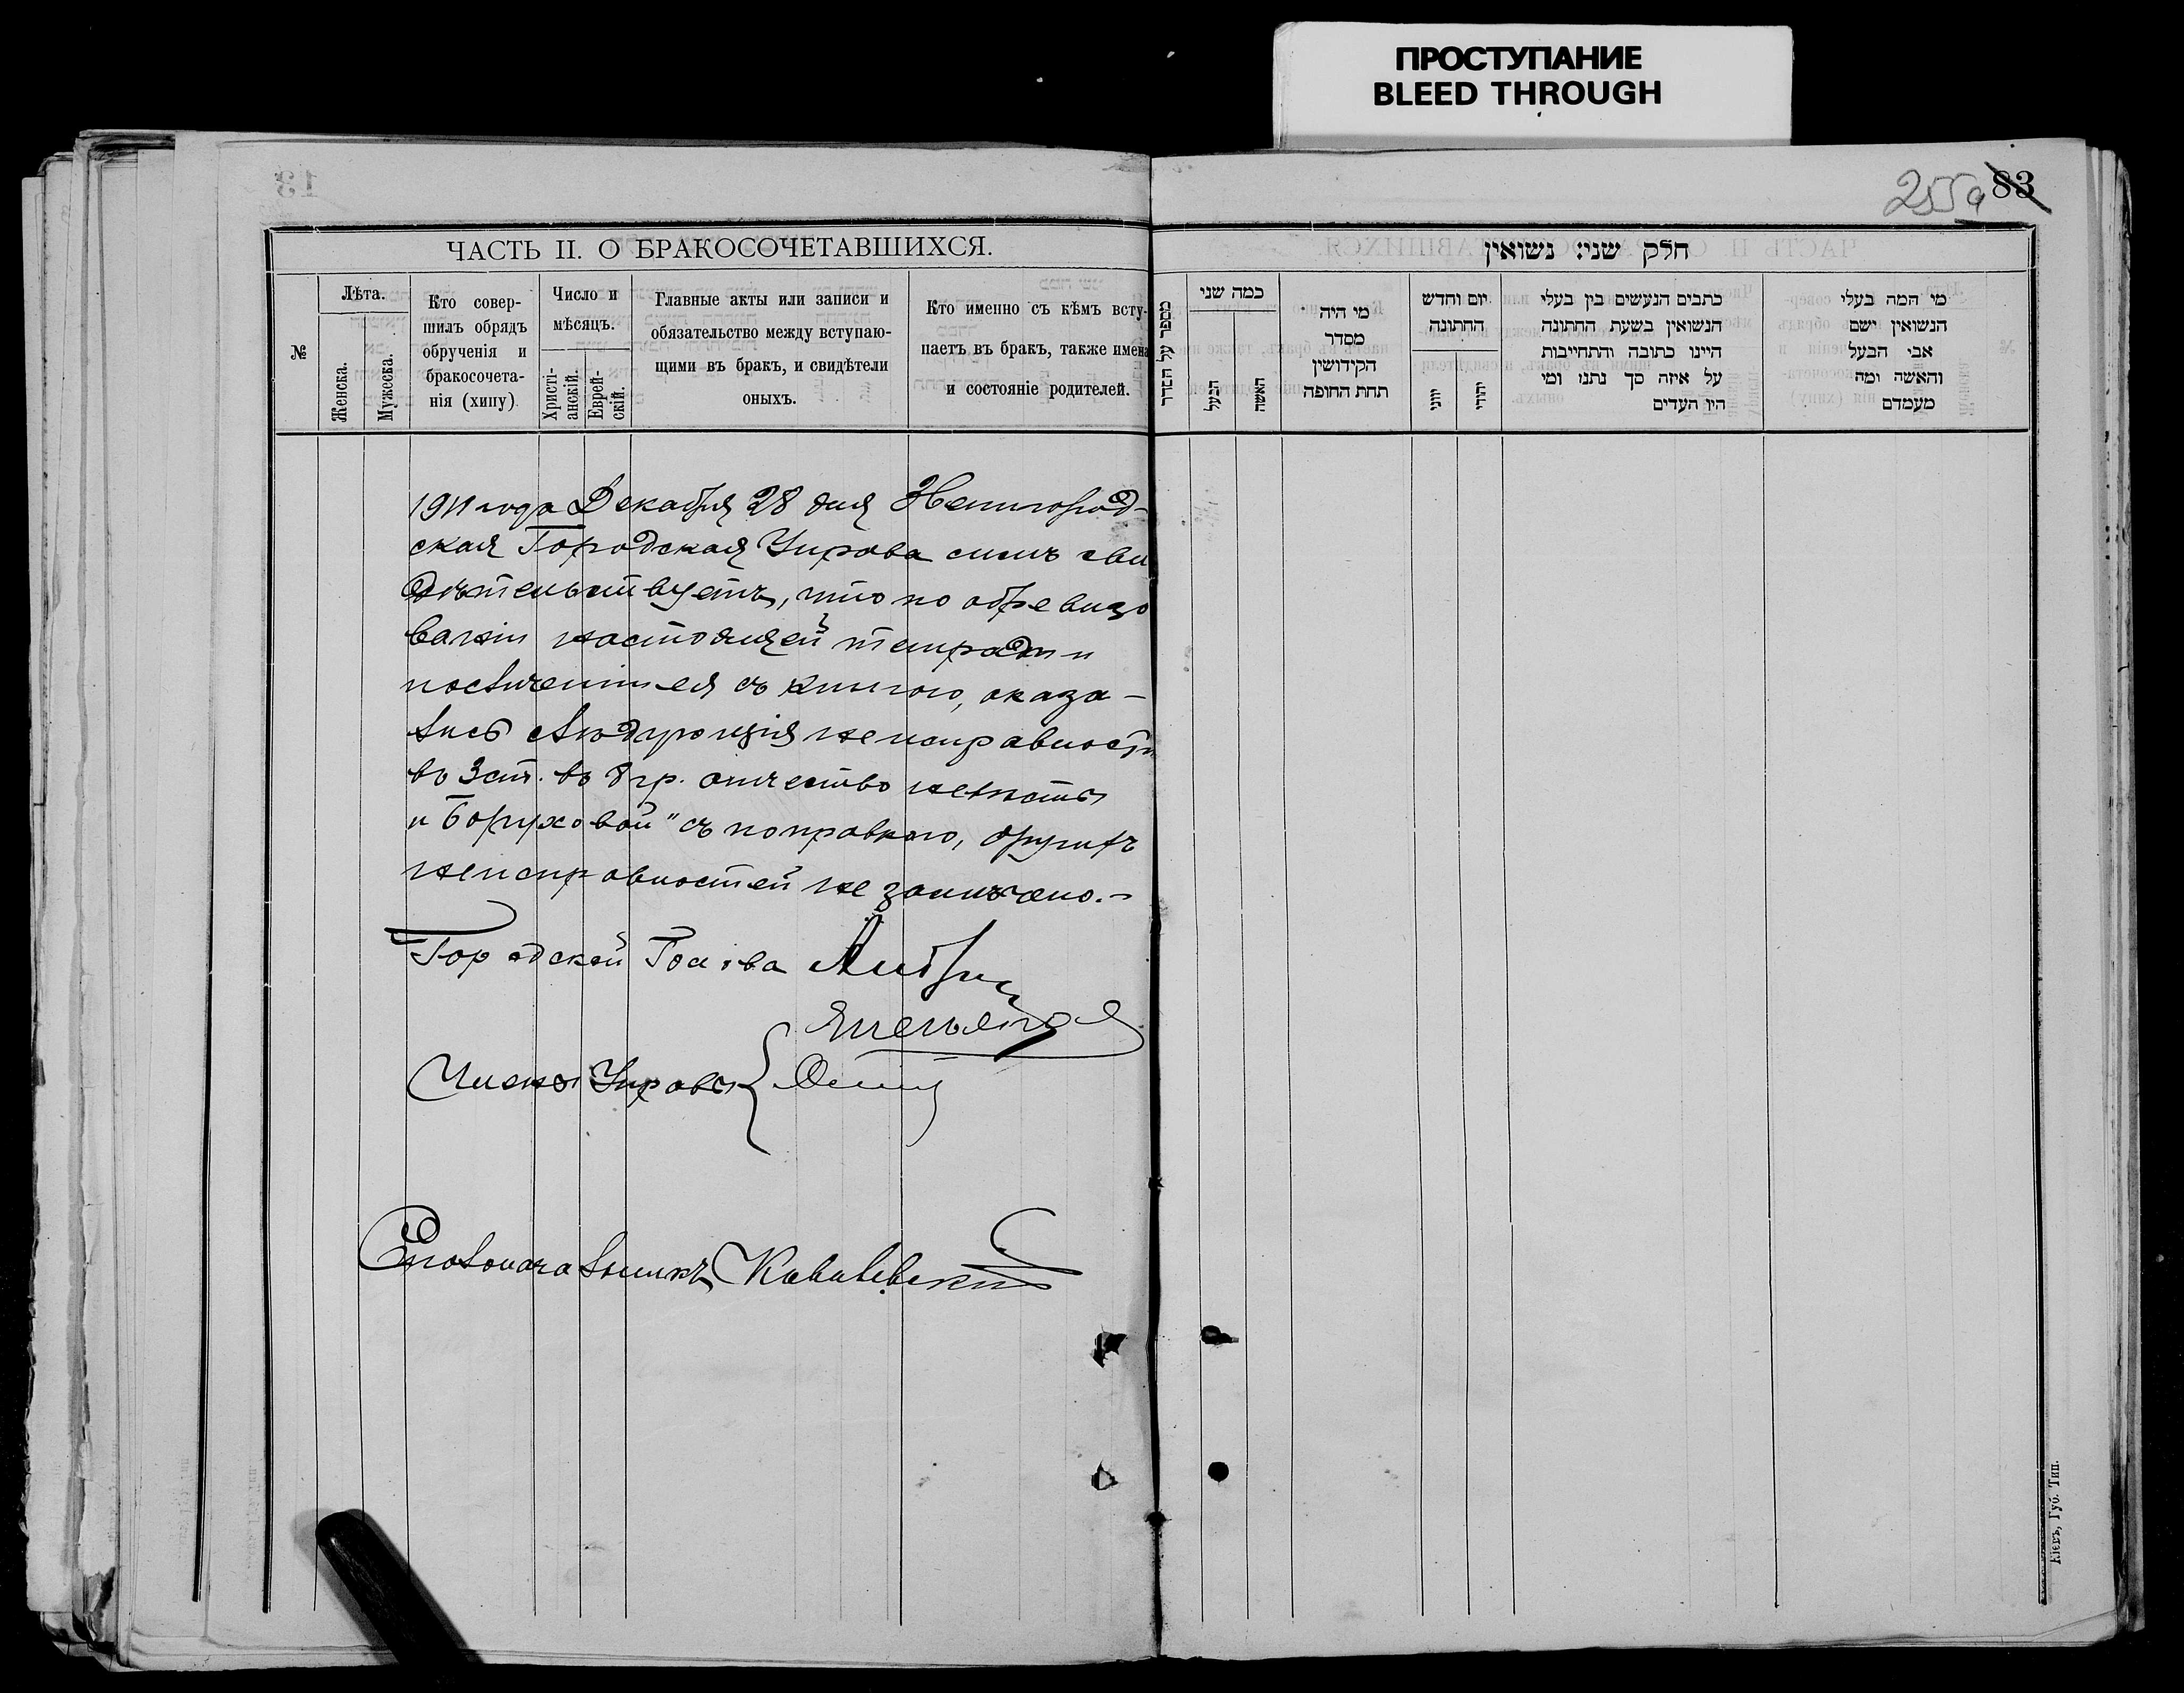 ПРОСТУПАНИЕ
BLEED THROUGH
13
255а 83
ЧАСТЬ II. О БРАКОСОЧЕТАВШИХСЯ.
№
Лѣта.
Женска.
Мужеска.
Кто совер-
шилъ обрядъ
обрученія и
бракосочета-
нія (хипу)
Число и
мѣсяцъ.
Христі-
анскій.
Еврей-
скій.
Главные акты или записи и
обязательство между вступаю-
щими въ бракъ, и свидѣтели
оныхъ.
Кто именно съ кѣмъ всту-
паетъ въ бракъ, также имена
и состояніе родителей.
1911 года Декабря 28 дня Звенигород-
ская Городская Управа симъ сви
дѣтельствуетъ, что по обревизо
ваніи настоящей тетради и
по сличеніи ея съ книгою, оказа-
лись слѣдующія неисправности
въ 3 ст. въ 8 гр. отчество невѣсты
„Боруховой" съ поправкою, другихъ
неисправностей не замѣчено.-
Городской Голова
Члены Управы
Ковалевскій
חלק שני: נשואין
מספר על הסדר
כמה שני
הבעל
האשה
מי היה
מסדר
הקידושין
תחת החופה
יום וחדש
החתונה
יווני
יהודי
כתבים הנעשים בין בעלי
הנשואין בשעת החתונה
היינו כתובה והתחייבות
על איזה סך נתנו ומי
היו העדים
מי המה בעלי
הנשואין ושם
אבי הבעל
והאשה ומה
מעמדם
Кіевъ, Губ. Тип.